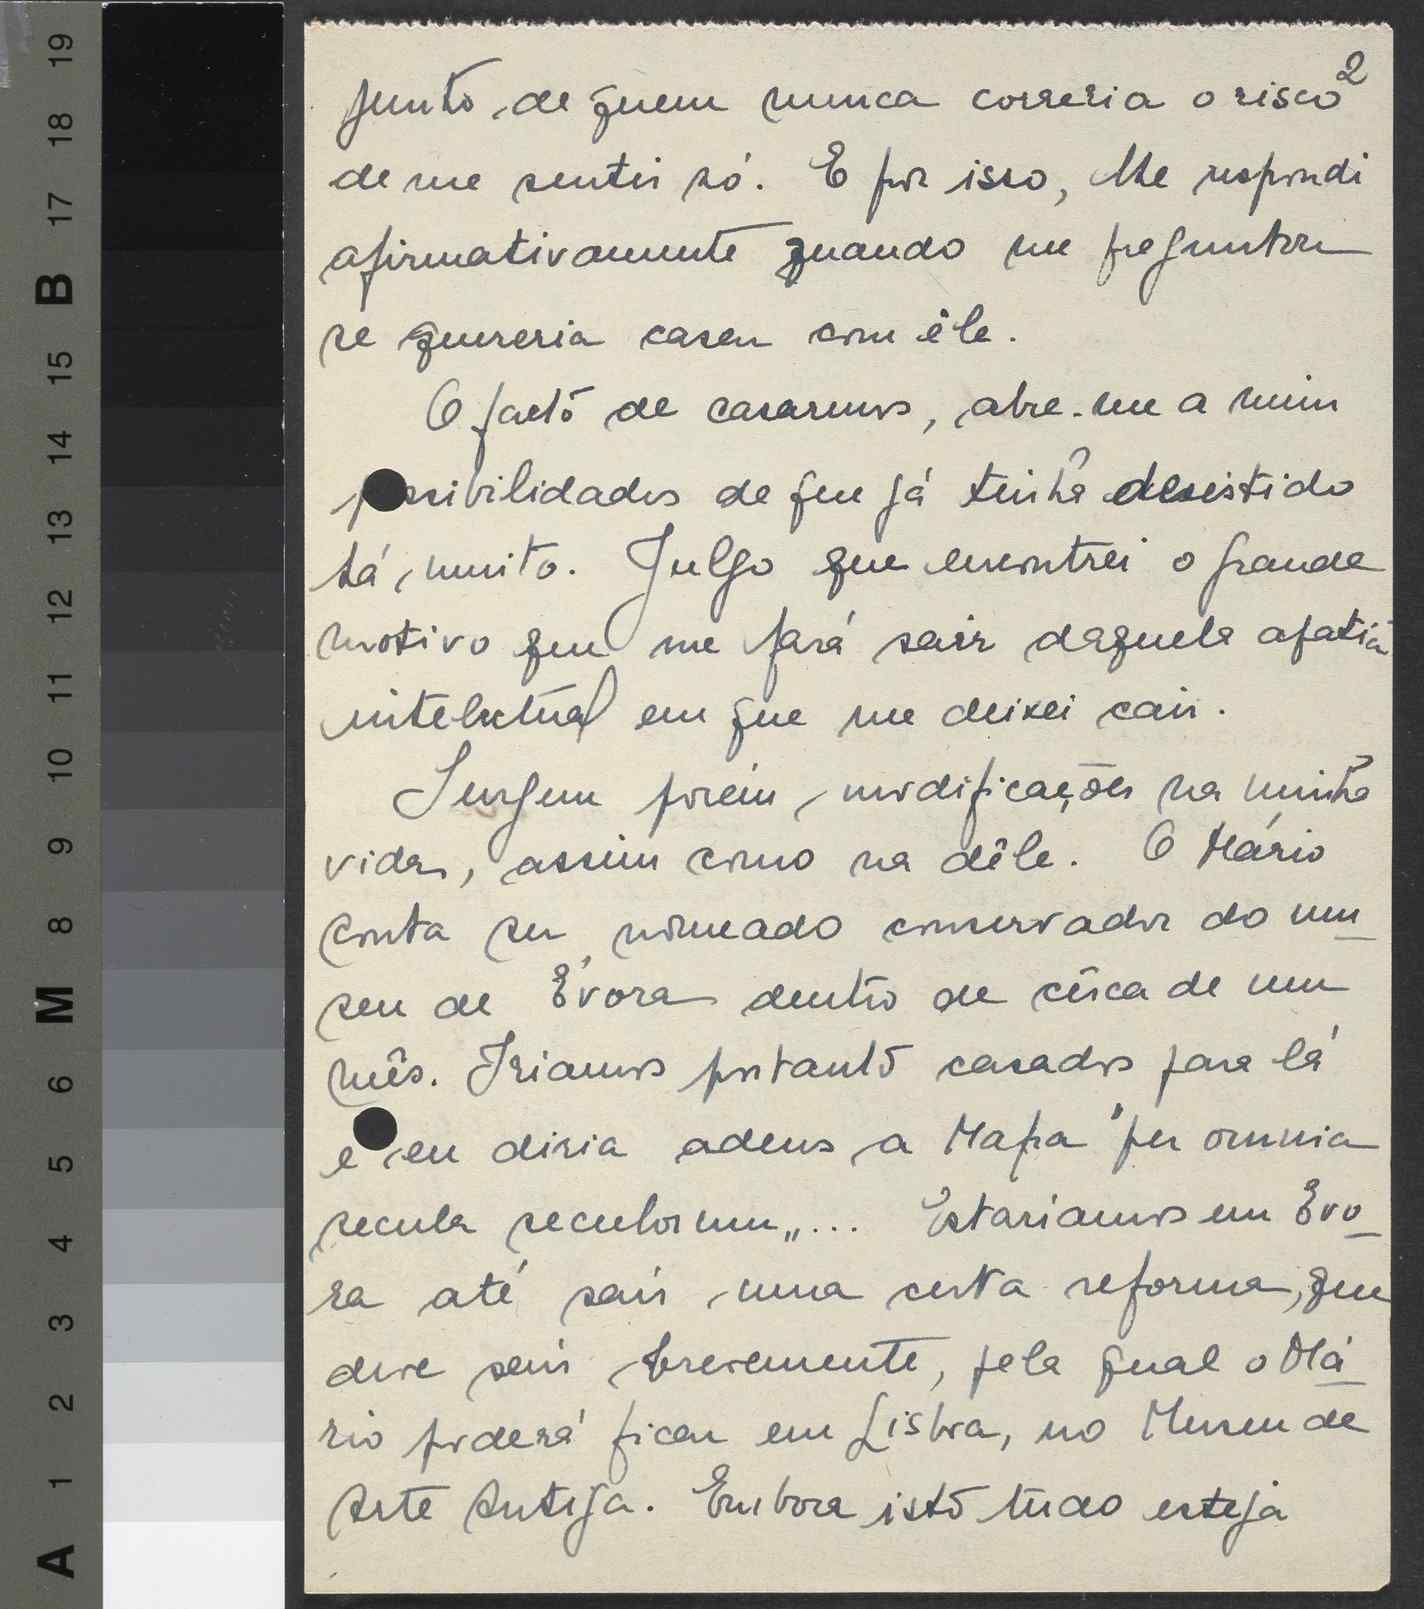 2
junto de quem nunca correria o risco
de me sentir só. E por isso, lhe respondi
afirmativamente quando me preguntou
se quereria casar com êle.
O facto de casarmos, abre-me a mim
possibilidades de que já tinha desistido
há muito. Julgo que encontrei o grande
motivo que me fará sair daquela apatia
intelectual em que me deixei cair.
Surgem porém, modificações na minha
vida, assim como na dêle. O Mário
conta ser nomeado conservador do mu_
seu de Évora dentro de cêrca de um
mês. Iriamos portanto casados para lá
e eu diria adeus a Mafra "per omnia
secula seculorum"... Estariamos em Évo_
ra até sair uma certa reforma, que
deve sair brevemente, pela qual o Má_
rio poderá ficar em Lisboa, no Museu de
Arte Antiga. Embora isto tudo esteja
A 1 2 3 4 5 6 M 8 9 10 11 12 13 14 15 B 17 18 19